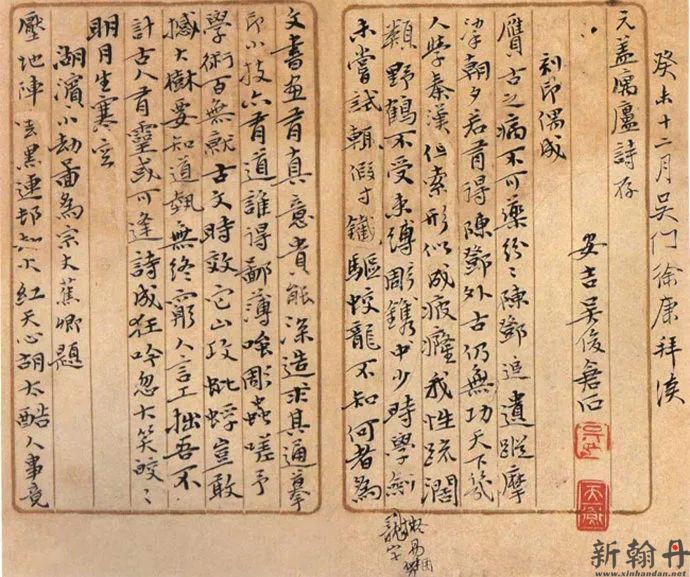 癸未十二月吴门徐康拜
元盖寓廬詩存
安吉吴俊倉石
刻印偶成
贋古之病不可藥紛〻陳鄧追遺蹤摩
挲朝夕若有得陳鄧外古仍無功天下幾
人學秦漢但索形似成疲癃我性疏闊
類野鶴不受束縛彫鐫中少時學劍
未嘗試輒假寸鐵驅蛟龍不知何者為
龍字
文書畫有真意貴能深造求其通摹
印小技亦有道誰得鄙薄嗤彫蟲嗟予
學術百無就古文時效它山攻蚍蜉豈敢
撼大樹要知道藝無終窮人言工拙吾不
計古人有靈或可逢詩成狂吟忽大笑皎〻
明月生寒空
湖濱小劫啚為宗大蕉卿題
壓地陣雲黑連邨火紅天心胡太酷人事竟
新翰丹
www.xinhandan.net